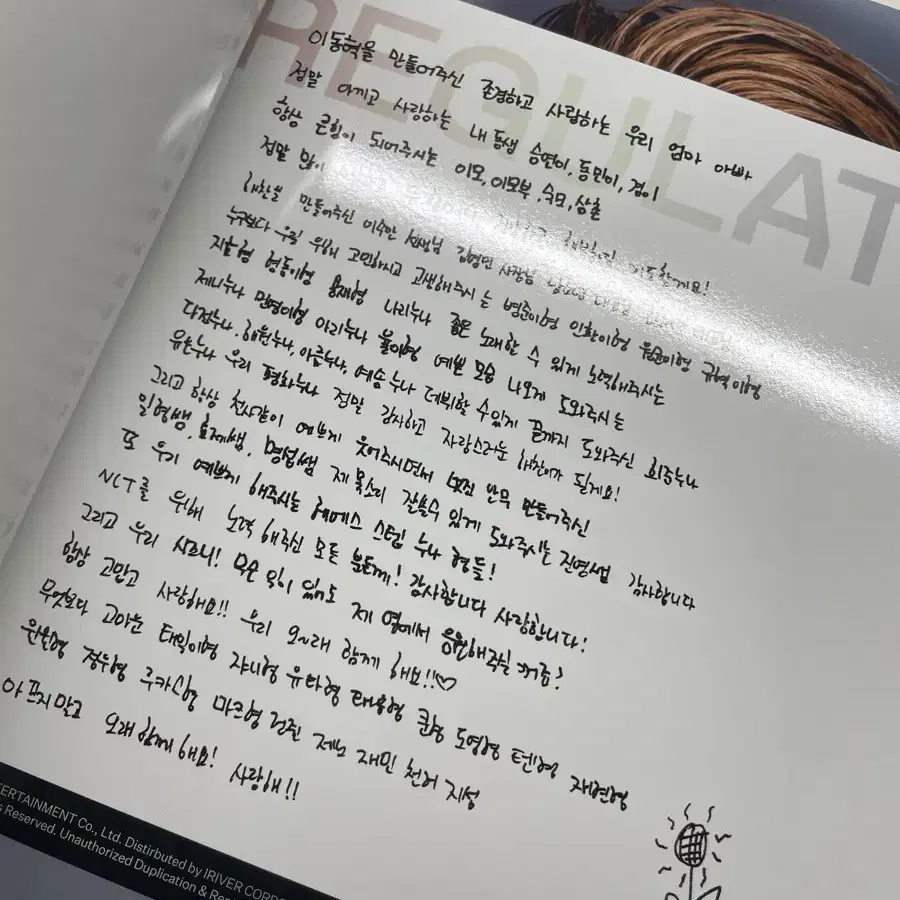 REGULAT
이동혁을 만들어주신 존경하고 사랑하는 우리 엄마 아빠
정말 아끼고 사랑하는 내 동생 승연이, 동민이, 겸이
항상 큰힘이 되어주시는 이모, 이모부, 숙모, 삼촌
정말 많이
해찬을 만들어주신 이수만 선생님 김영민 사장님
누구보다 우릴 위해 고민하시고 고생해주시는 병준이형 인환이형 원균이형 규혁이형
지호형 형동이형 용재형 나리누나 좋은 노래할 수 있게 노력해주시는
제니누나 민영이형 아리누나 율이형 예쁜 모습 나오게 도와주시는
다정누나, 해원누나, 아름누나, 예슬누나 데뷔할 수있게 끝까지 도와주신 희주누나
유은누나 우리 평화누나 정말 감사하고 자랑스러운 해찬이가 될게요!
그리고 항상 천사같이 예쁘게 웃어주시면서 멋진 안무 만들어주신
일형쌤, 효제쌤, 명섭쌤 제 목소리 잘쓸수 있게 도와주시는 진영쌤 감사합니다
또 우리 예쁘게 해주시는 헤메스 스텝 누나 형들!
NCT를 위해 노력 해주신 모든 분들께! 감사합니다 사랑합니다!
그리고 우리 시즈니! 무슨 일이 있어도 제 옆에서 응원해주실 거죠?
항상 고맙고 사랑해요!! 우리 오~래 함께 해요!!♡
무엇보다 고마운 태일이형 쟈니형 유타형 태용형 쿤형 도영형 텐형 재현형
윈윈형 정우형 루카스형 마크형 런쥔 제노 재민 천러 지성
아프지말고 오래 함께 해요! 사랑해!!
ERTAINMENT Co., Ltd. Distirbuted by IRIVER CORPO
s Reserved. Unauthorized Duplication & Re